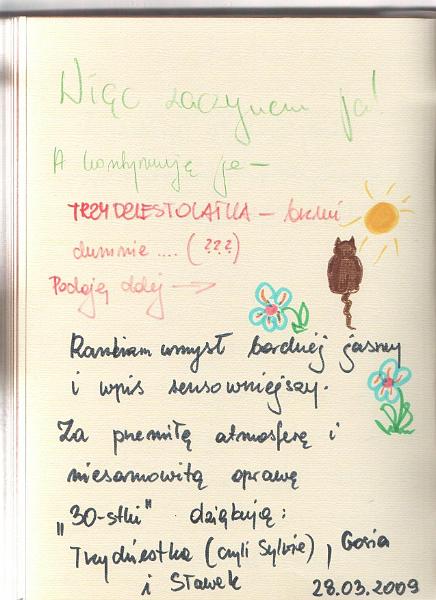 Więc zaczynam ja!
A kontynuują ja —
TRZYDZIESTOLATKA — brzmi
dumnie .... (???)
Podaję dalej →
Rankiem umysł bardziej jasny
i wpis sensowniejszy.
Za przemiłą atmosferę i
niesamowitą oprawę
„30-stki" dziękują:
Trzydziestka (czyli Sylwie), Gosia
i Sławek 28.03.2009